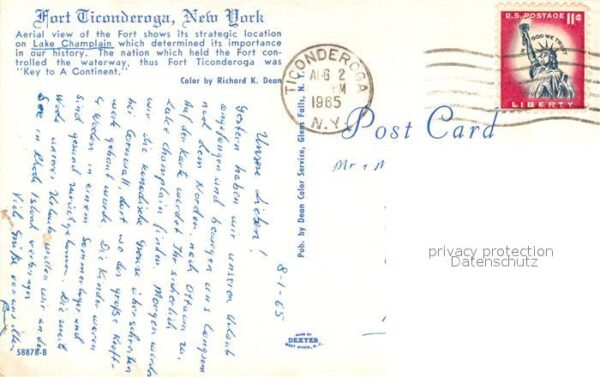 Fort Ticonderoga, New York
Aerial view of the Fort shows its strategic location
on Lake Champlain which determined its importance
in our history. The nation which held the Fort con-
trolled the waterway, thus Fort Ticonderoga was
"Key to A Continent."
Color by Richard K. Dean
8-1-65
Unsere Lieben!
Gestern haben wir unseren Urlaub
angefangen und bewegen uns langsam
nach dem Norden, nach Ottawa zu.
Auf der Karte werdet Ihr sicherlich
Lake Champlain finden. Morgen werden
wir die kanadische Grenze überschreiten
bei Cornwall, dort wo das große Kraft-
werk gebaut wurde. Die Kinder waren
in einem Sommerlager und
sind gesund zurückgekommen. Die zweite
Woche unseres Urlaubs wollen wir an der
See in Rhode Island verbringen
Viele Grüße von uns allen
58878-B
Pub. by Dean Color Service, Glens Falls, N. Y.
MADE BY
DEXTER
WEST NYACK, N.Y.
TICONDEROGA
AUG 2
PM
1965
N.Y.
U.S. POSTAGE 11¢
IN GOD WE TRUST
LIBERTY
Post Card
Mr +
privacy protection
Datenschutz